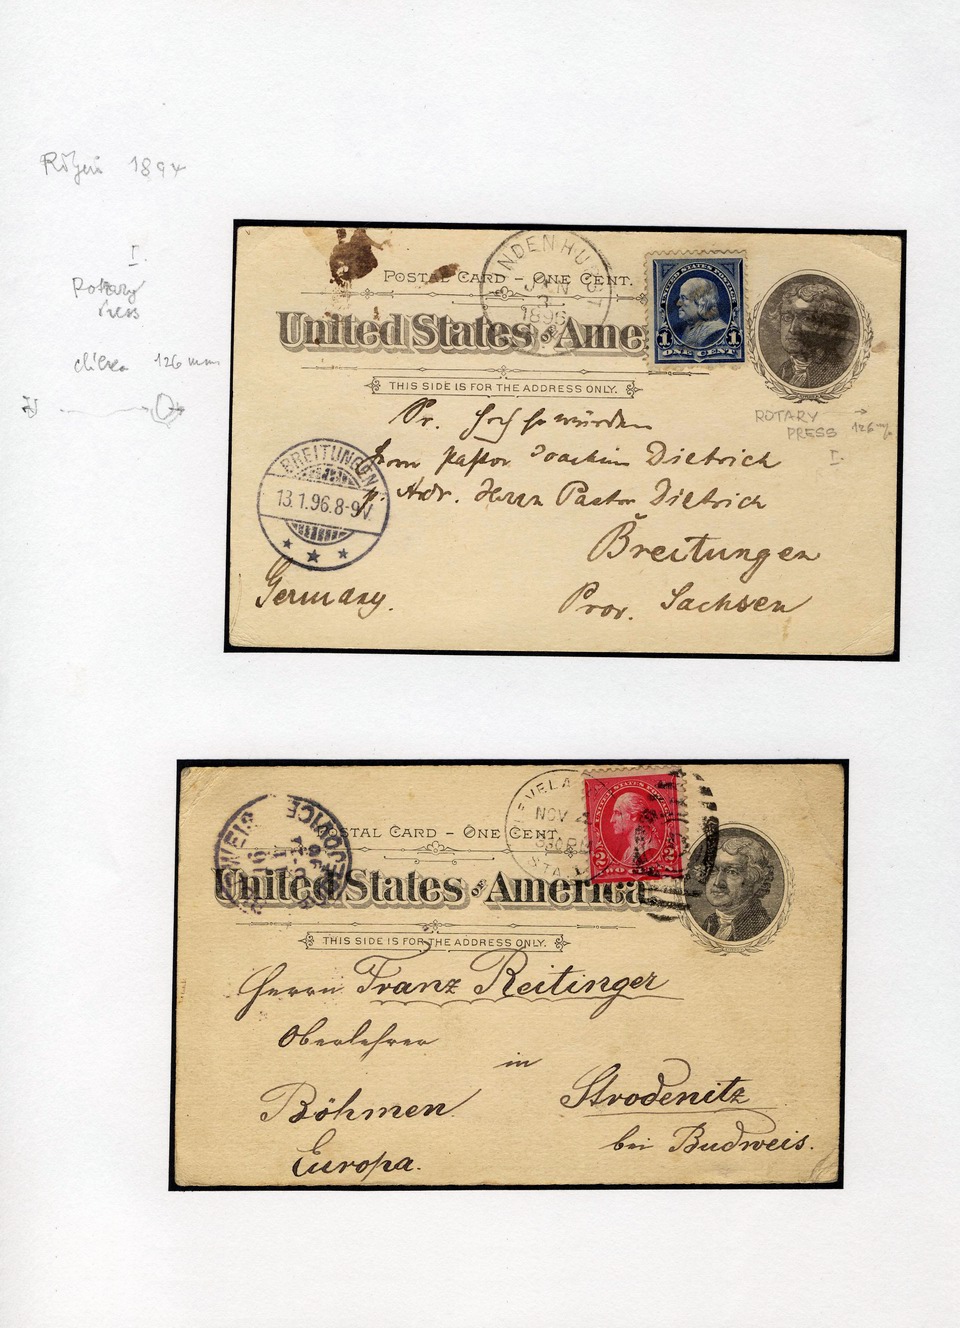 Říjen 1894
I.
Rotary
Press
126 mm
POSTAL CARD - ONE CENT.
United States of Ame
THIS SIDE IS FOR THE ADDRESS ONLY.
NDENHU ST
JAN
3
1896
UNITED STATES POSTAGE
1 1
ONE CENT
ROTARY →
PRESS 126 m/m
I
Sr. Hochehrwürden
Herrn Pastor Joachim Dietrich
p. Adr. Herrn Pastor Dietrich
Breitungen
Prov. Sachsen
Germany.
BREITUNGEN
13.1.96.8-9V.
POSTAL CARD - ONE CENT.
United States of America
THIS SIDE IS FOR THE ADDRESS ONLY.
EVELA
NOV
STA
2 2
Herrn Franz Reitinger
Oberlehrer
in
Strodenitz
Böhmen
bei Budweis.
Europa.